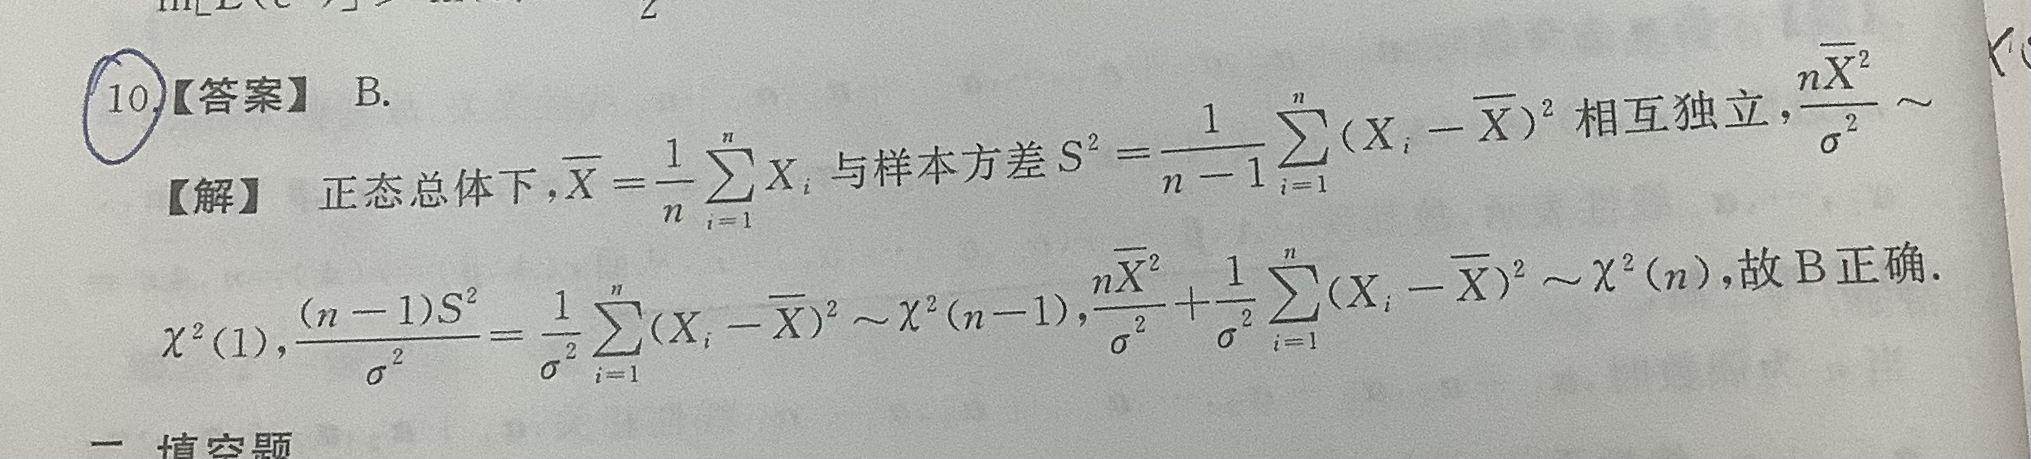 10.【答案】 B.
【解】 正态总体下,X̄ = 1/n ∑_{i=1}^{n} X_i 与样本方差 S² = 1/(n-1) ∑_{i=1}^{n} (X_i - X̄)² 相互独立, nX̄²/σ² ~
χ²(1), (n-1)S²/σ² = 1/σ² ∑_{i=1}^{n} (X_i - X̄)² ~ χ²(n-1), nX̄²/σ² + 1/σ² ∑_{i=1}^{n} (X_i - X̄)² ~ χ²(n),故 B 正确.
填空题